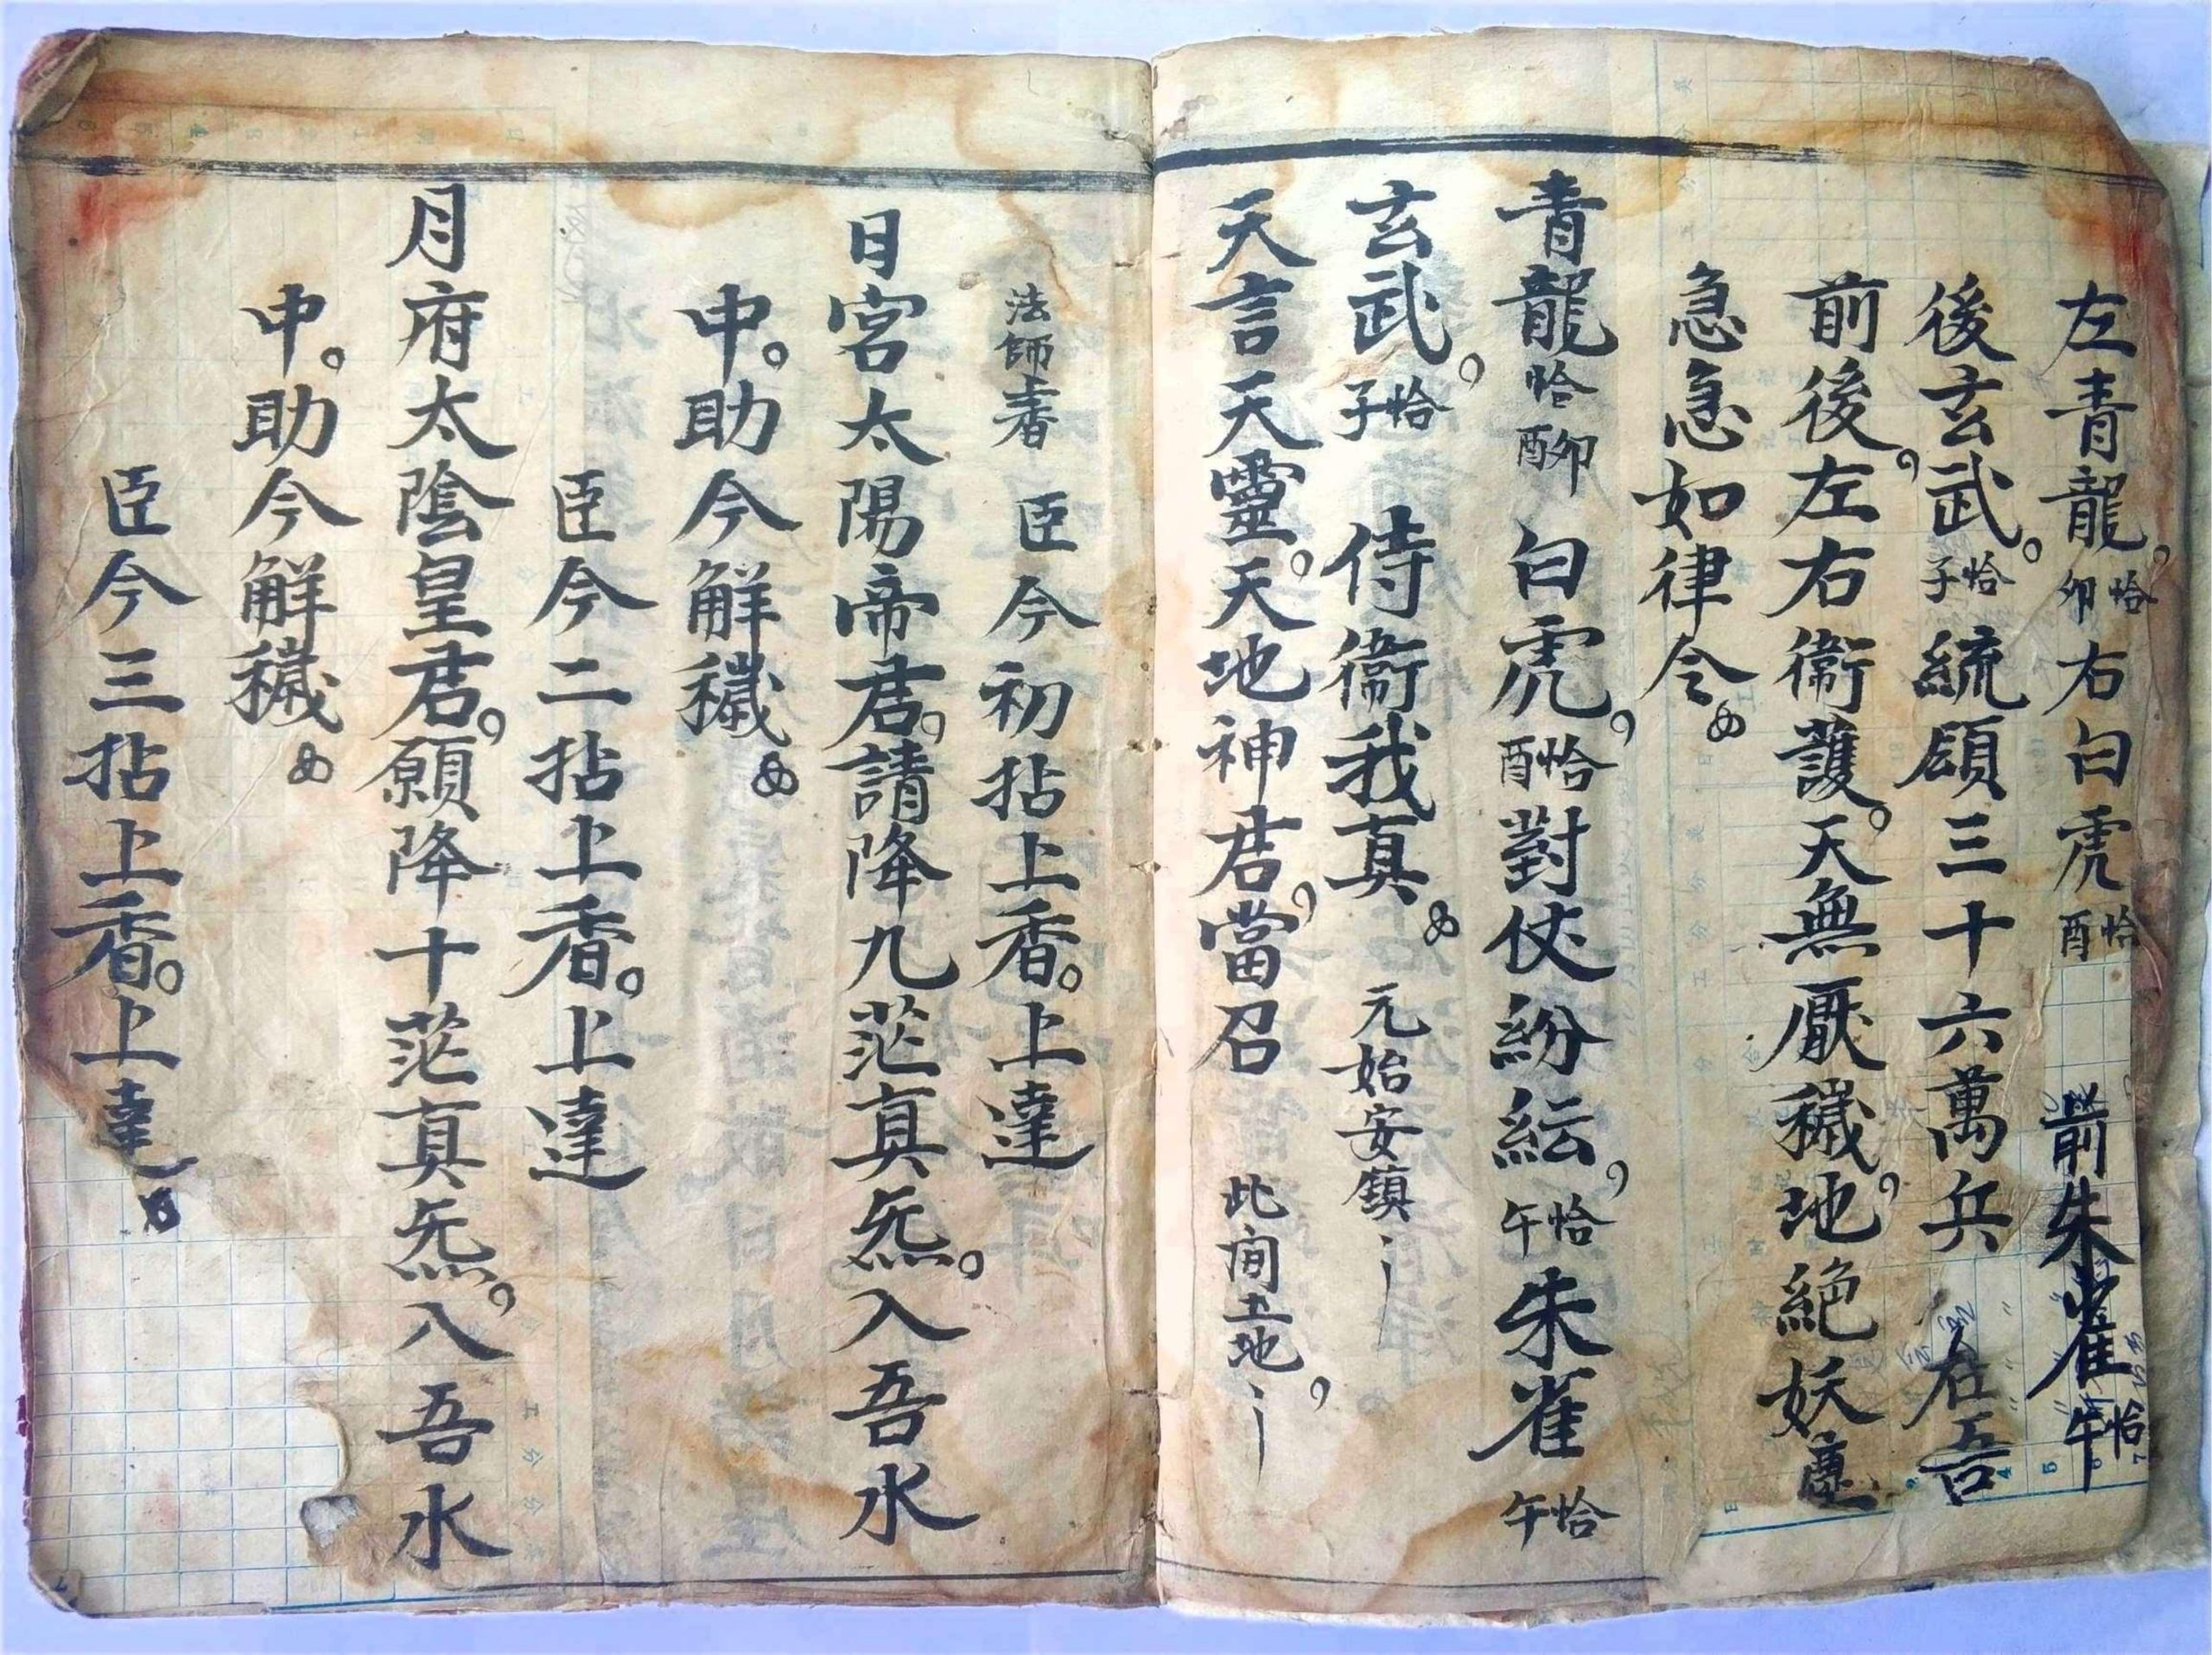 左青龍。恰卯右白虎恰酉 前朱雀恰午
後玄武。恰子統領三十六萬兵 在吾
前後，左右衛護。天無厭穢，地絕妖塵
急急如律令
青龍恰卯酉 白虎，恰酉對仗紛紜，恰午朱雀恰午
玄武，恰子 侍衛我真 元始安鎮
天言天靈。天地神君，當召 此间土地，
法師上香 臣今初拈上香。上達
日宮太陽帝君，請降九茫真炁。入吾水
中。助今解穢
臣今二拈上香。上達
月府太陰皇君，願降十茫真炁。入吾水
中。助今解穢
臣今三拈上香。上達